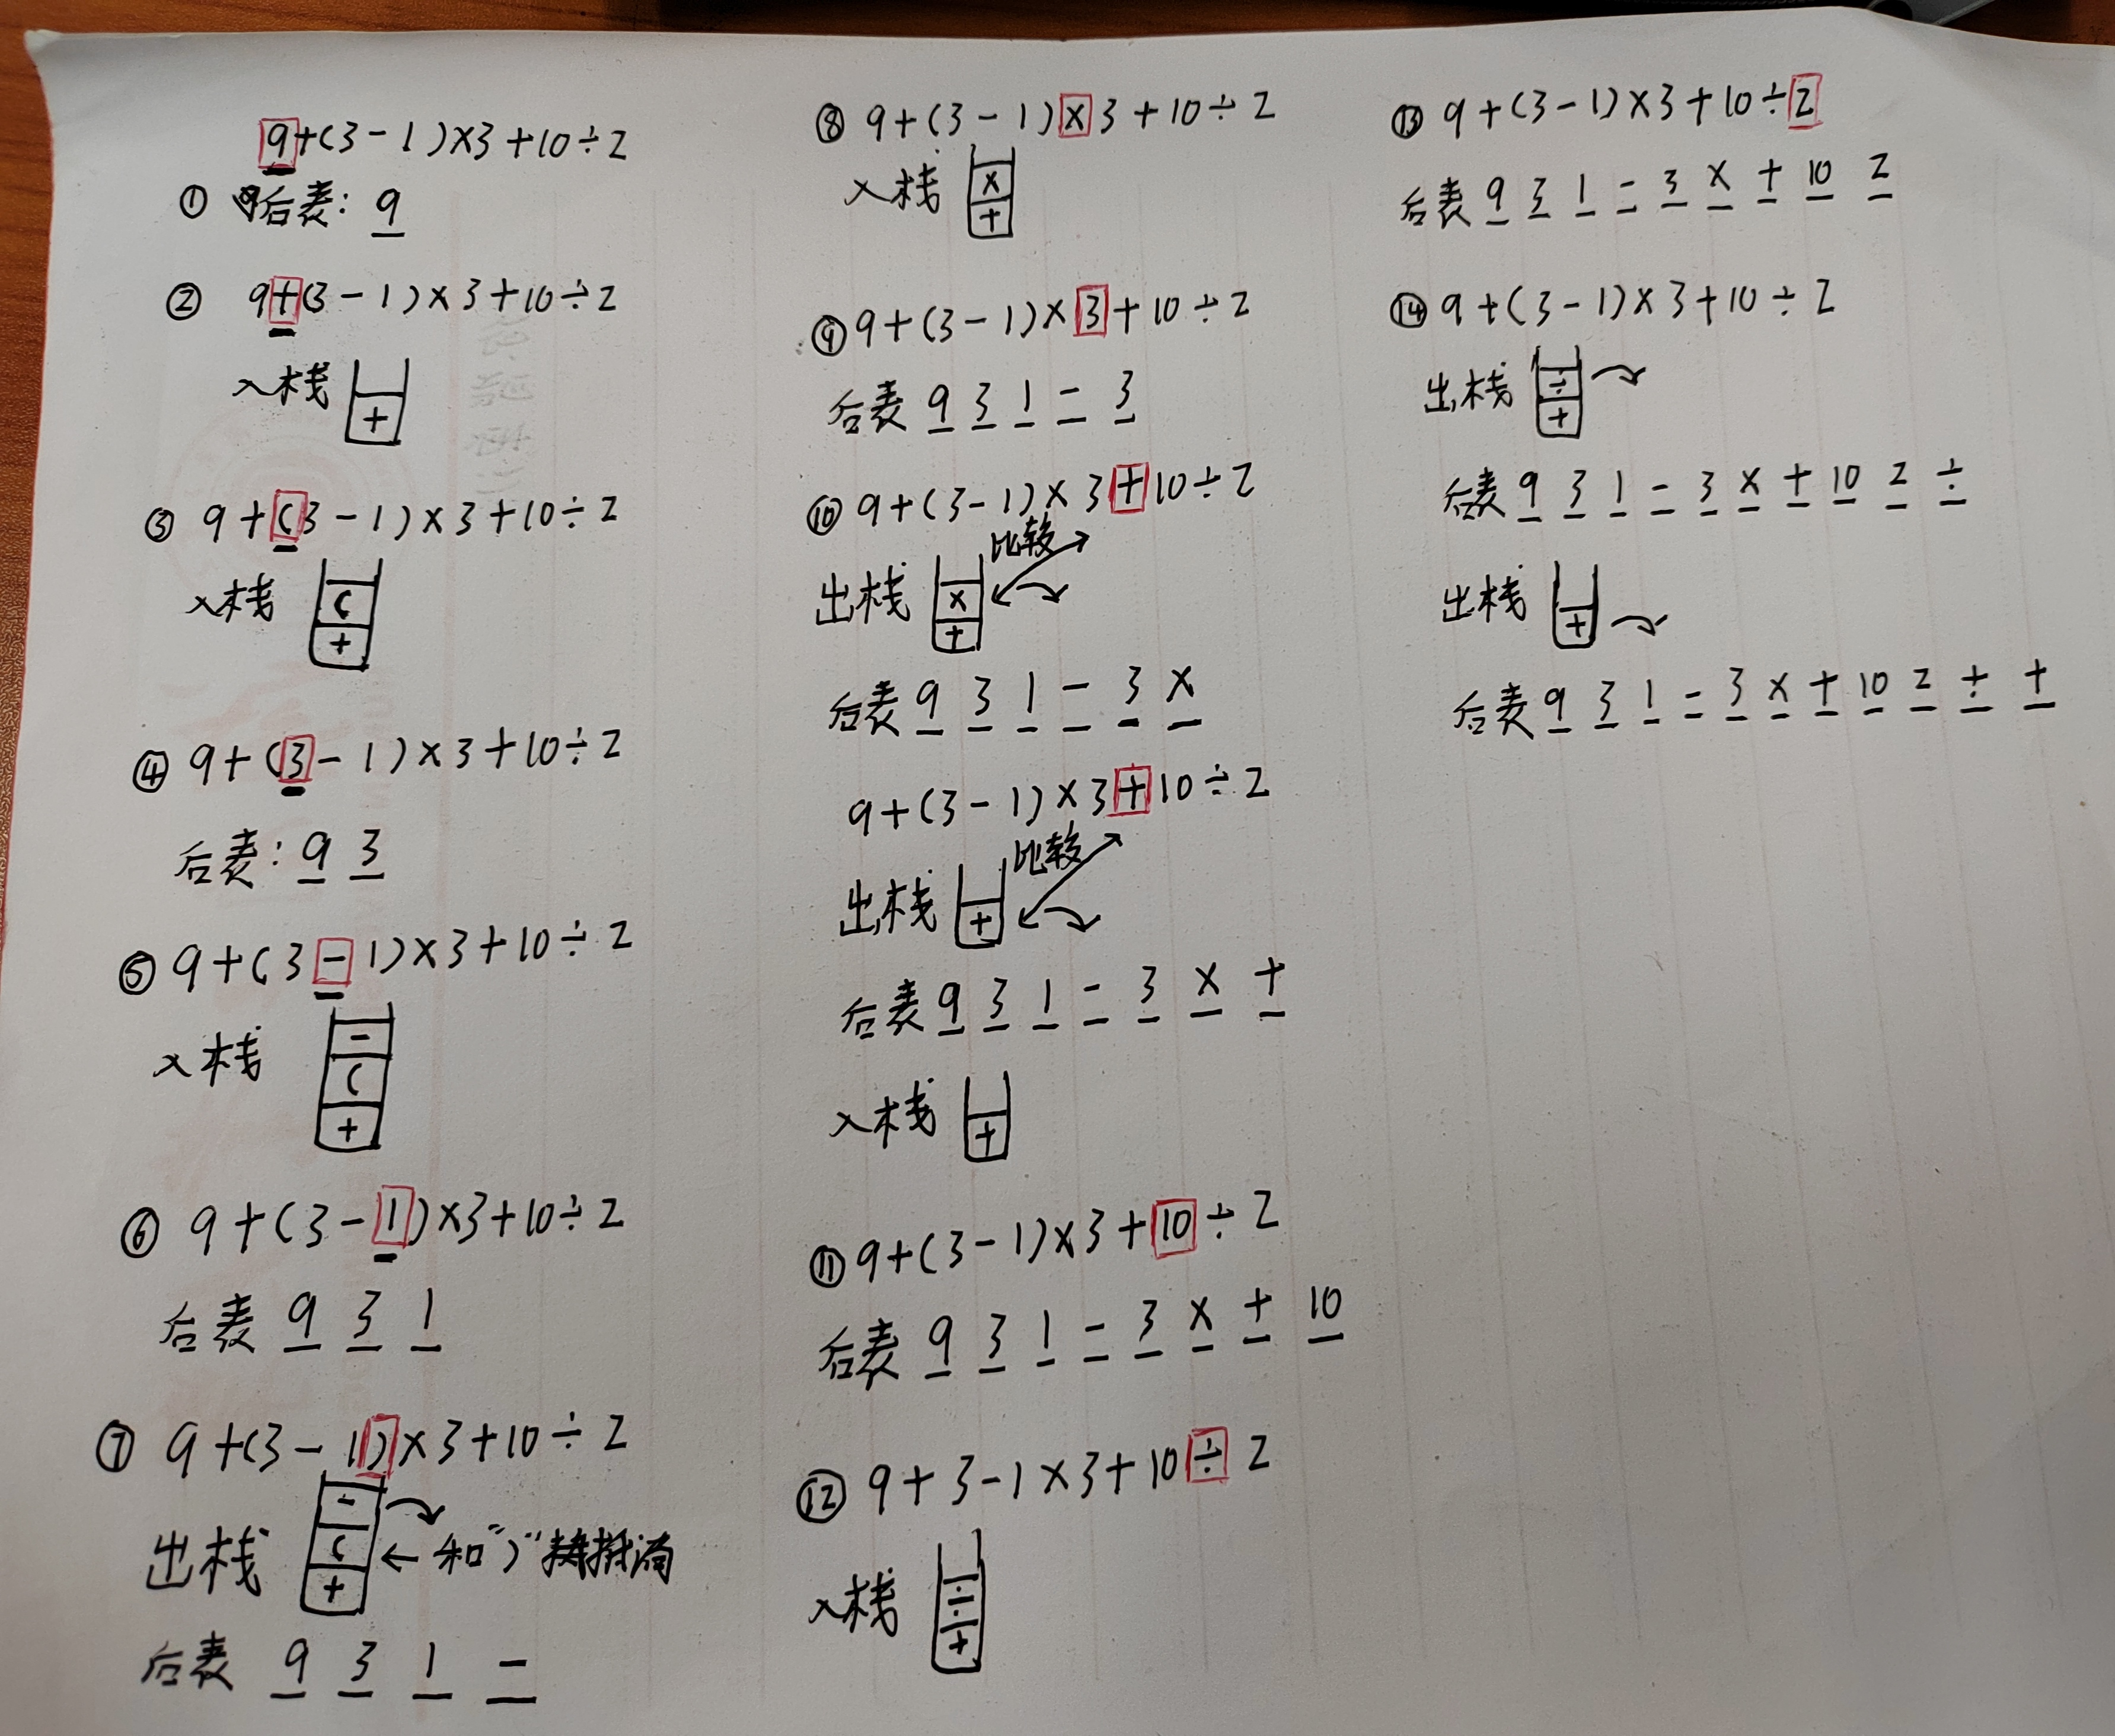 9+(3-1)×3+10÷2
① 后表: 9
② 9+(3-1)×3+10÷2
入栈 +
③ 9+(3-1)×3+10÷2
入栈 (
+
④ 9+(3-1)×3+10÷2
后表: 9 3
⑤ 9+(3-1)×3+10÷2
入栈 -
(
+
⑥ 9+(3-1)×3+10÷2
后表 9 3 1
⑦ 9+(3-1)×3+10÷2
-
出栈 ( ← 和")"抵消
+
后表 9 3 1 -
⑧ 9+(3-1)×3+10÷2
入栈 ×
+
⑨ 9+(3-1)×3+10÷2
后表 9 3 1 - 3
⑩ 9+(3-1)×3+10÷2
比较
出栈 ×
+
后表 9 3 1 - 3 ×
9+(3-1)×3+10÷2
比较
出栈 +
后表 9 3 1 - 3 × +
入栈 +
⑪ 9+(3-1)×3+10÷2
后表 9 3 1 - 3 × + 10
⑫ 9+3-1×3+10÷2
入栈 ÷
+
⑬ 9+(3-1)×3+10÷2
后表 9 3 1 - 3 × + 10 2
⑭ 9+(3-1)×3+10÷2
出栈 ÷
+
后表 9 3 1 - 3 × + 10 2 ÷
出栈 +
后表 9 3 1 - 3 × + 10 2 ÷ +